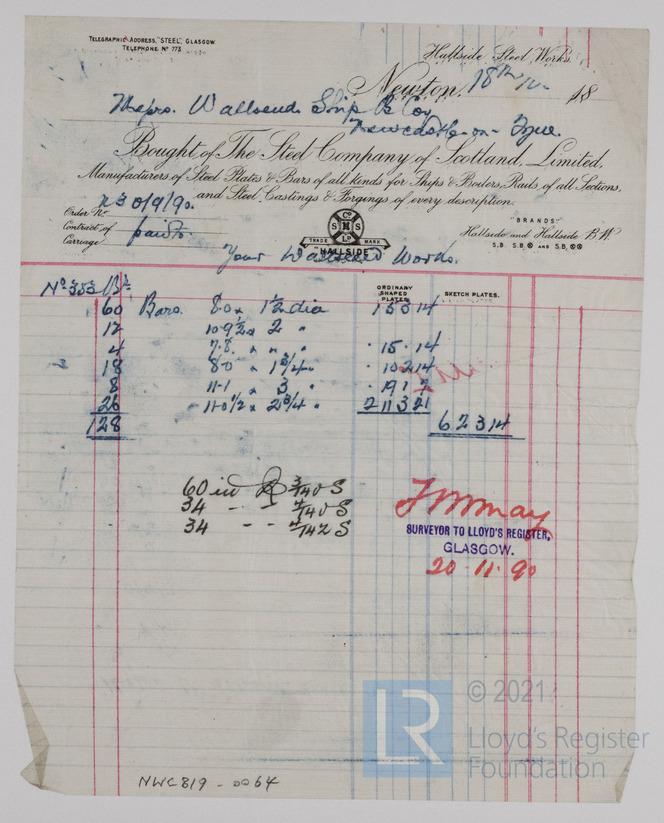 TELEGRAPHIC ADDRESS, "STEEL", GLASGOW.
TELEPHONE No 773
Hallside Steel Works.
Newton, 18th 18
Messrs. Wallsend Ship B Coy
Newcastle-on-Tyne.
Bought of The Steel Company of Scotland, Limited,
Manufacturers of Steel Plates & Bars of all kinds for Ships & Boilers, Rails of all Sections,
and Steel Castings & Forgings of every description.
Order No 30/9/90.
Contract of
Carriage paid to
Your Wallsend Works.
S Co M S Ld
TRADE MARK
"HALLSIDE"
"BRANDS:"
Hallside and Hallside B.W.
S.B. S.B. AND S.B.
ORDINARY SHAPED PLATES
SKETCH PLATES.
No 353
60 Bars. 8.0 x 1 1/2 dia 15 3 14
12 10.9 1/2 x 2 "
4 7.8 x " " 15 14
18 8.0 x 1 3/4 " 10 2 14
8 11.1 x 3 " 19 1 7
26 11.0 1/2 x 2 3/4 " 2 11 3 21
128 6 2 3 14
60 in 3/140 S
34 - - 4/140 S
34 - - 4/142 S
J M May
SURVEYOR TO LLOYD'S REGISTER,
GLASGOW.
20.11.90
LR
© 2021
Lloyd's Register
Foundation
NWC819-0064